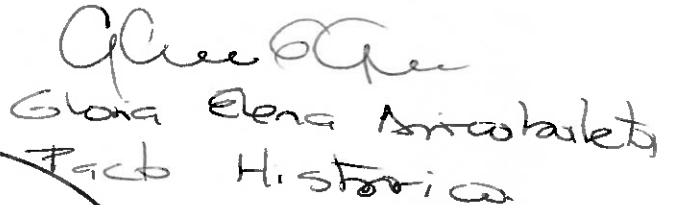 Gloria Elena Arizabaleta
Pacto Histórico